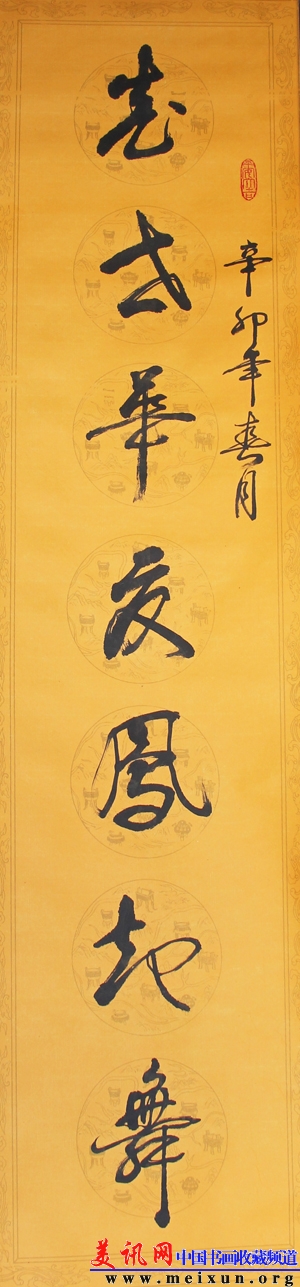 辛卯年春月
盛世華夏鳳起舞
美讯网 中国书画收藏频道
www.meixun.org